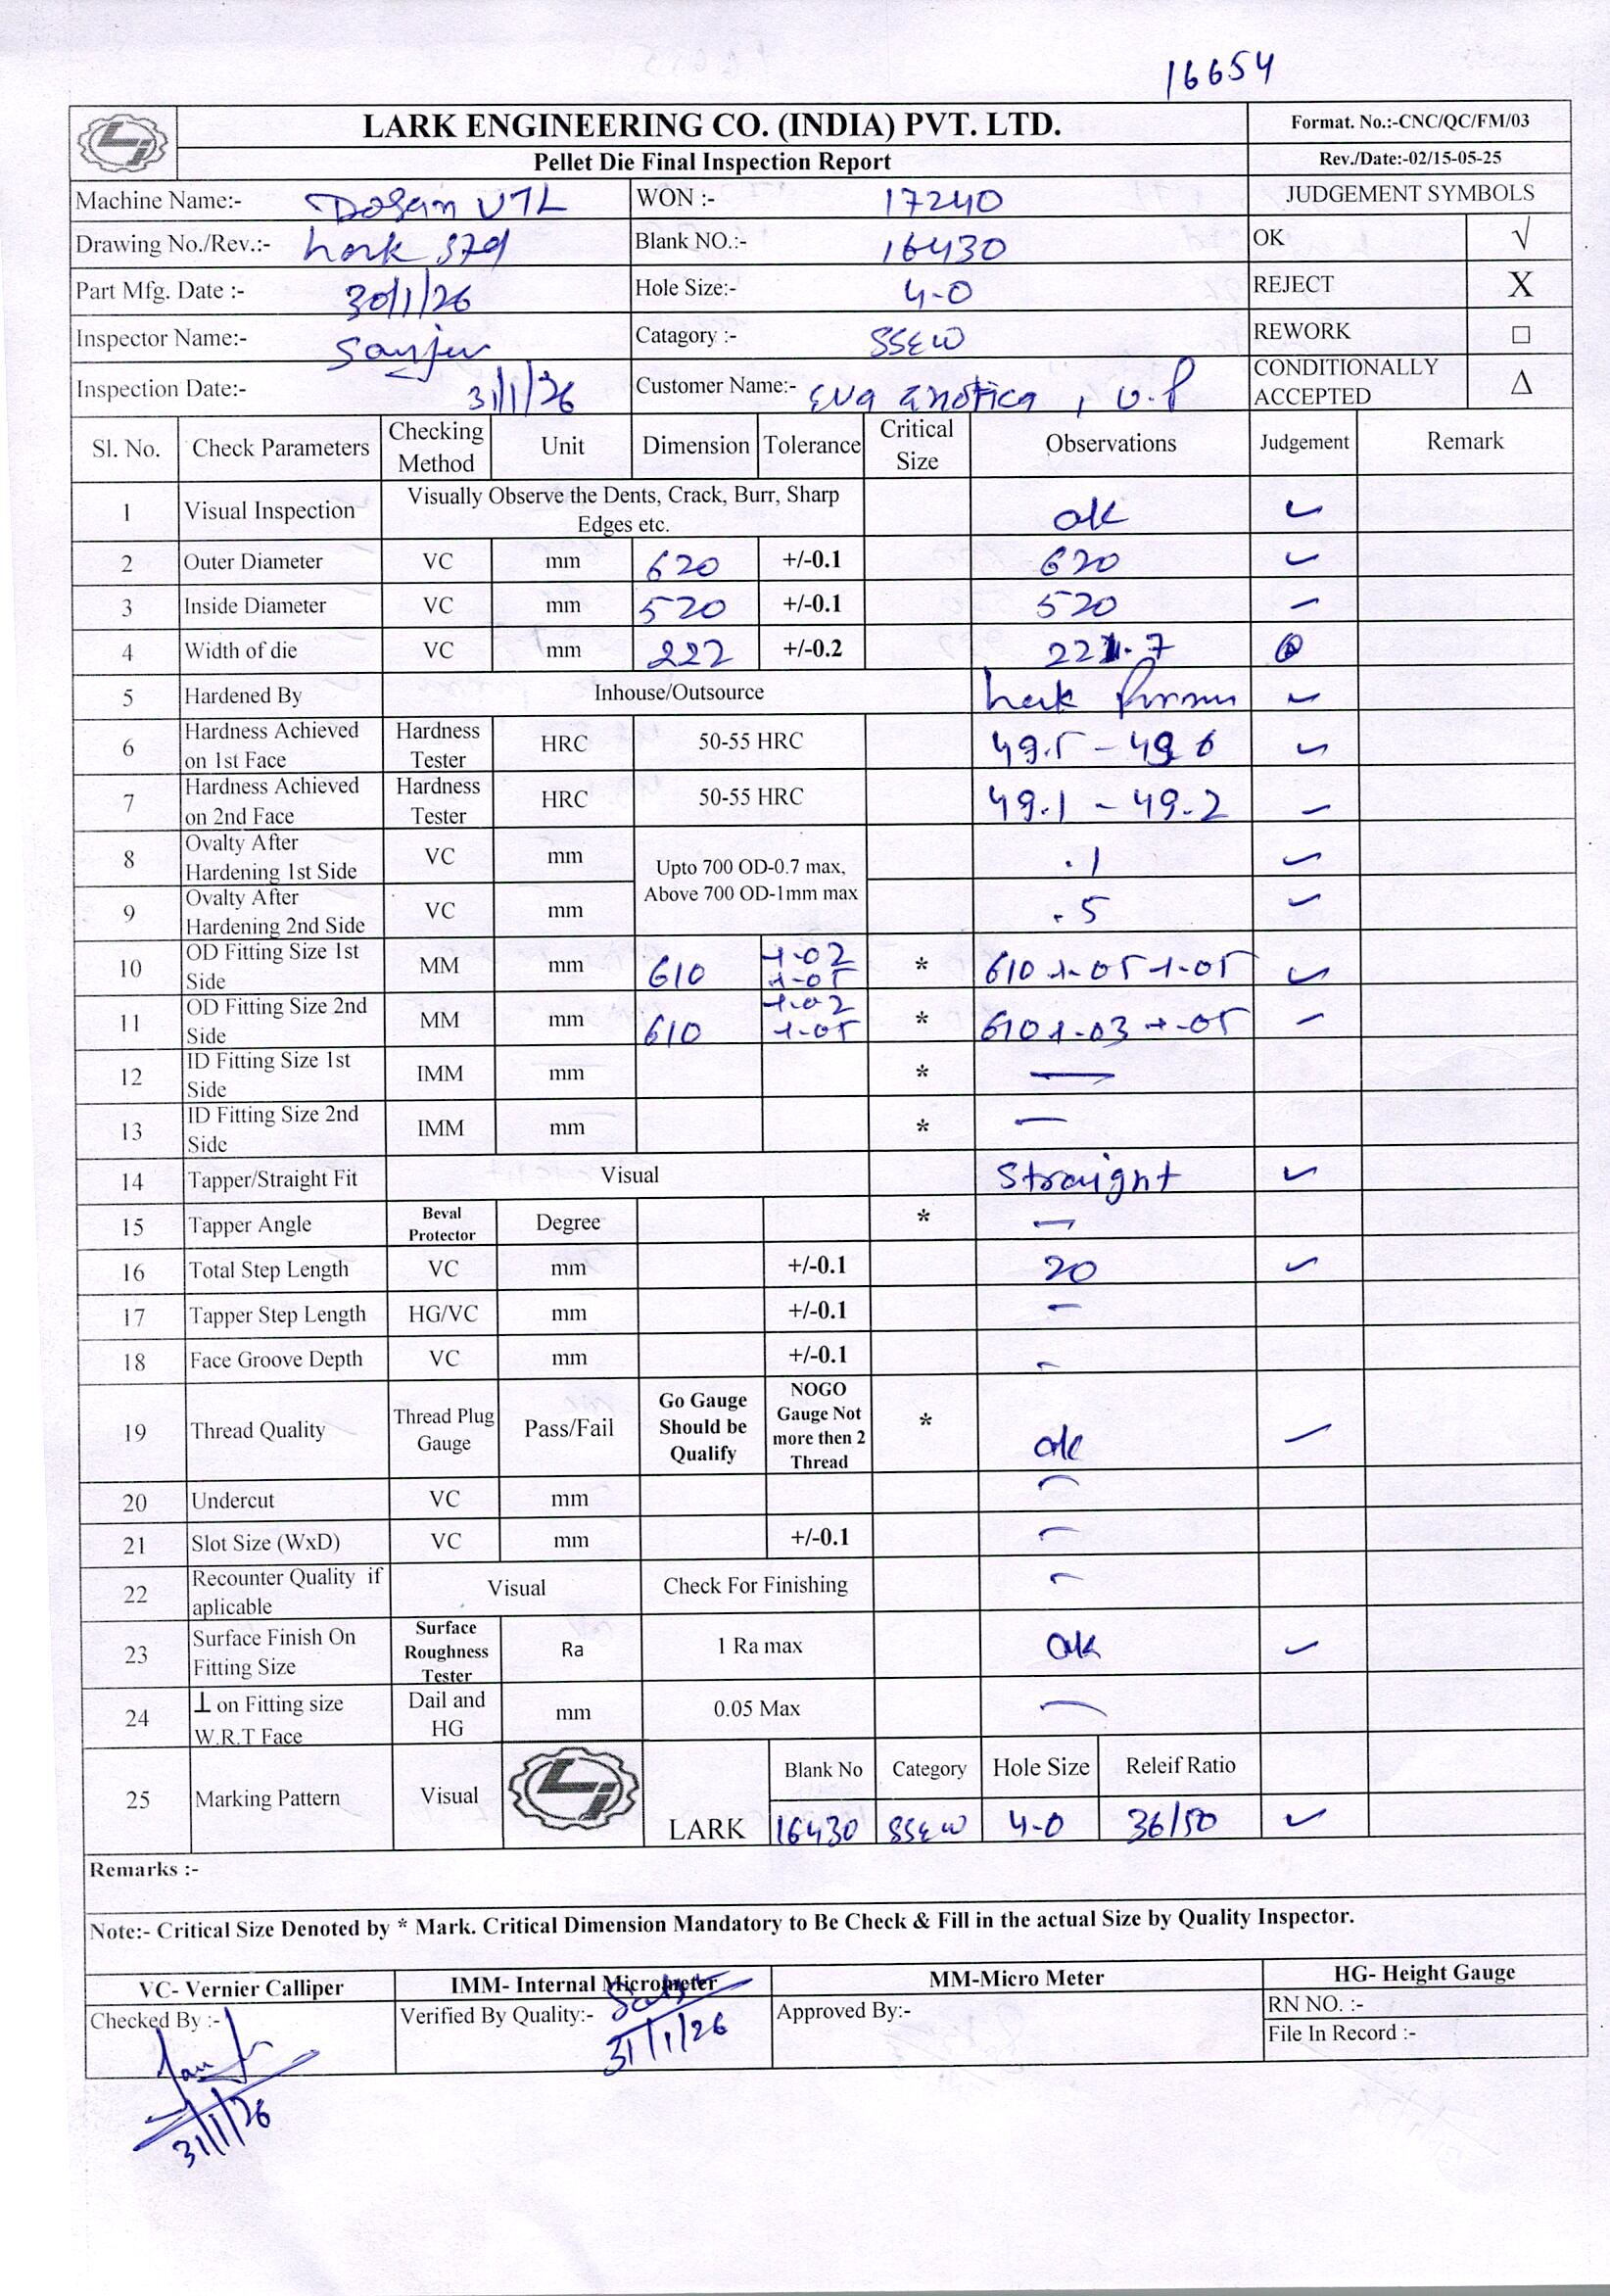 16654
LARK ENGINEERING CO. (INDIA) PVT. LTD.
Format. No.:-CNC/QC/FM/03
Pellet Die Final Inspection Report
Rev./Date:-02/15-05-25
Machine Name:- Dosan VTL WON :- 17240 JUDGEMENT SYMBOLS
Drawing No./Rev.:- Lark std Blank NO.:- 16430 OK √
Part Mfg. Date :- 30/1/26 Hole Size:- 4-0 REJECT X
Inspector Name:- Sanjeev Catagory :- SSEW REWORK □
Inspection Date:- 31/1/26 Customer Name:- Eva , U.P CONDITIONALLY ACCEPTED Δ
Sl. No. Check Parameters Checking Method Unit Dimension Tolerance Critical Size Observations Judgement Remark
1 Visual Inspection Visually Observe the Dents, Crack, Burr, Sharp Edges etc. ok ✓
2 Outer Diameter VC mm 620 +/-0.1 620 ✓
3 Inside Diameter VC mm 520 +/-0.1 520 ✓
4 Width of die VC mm 222 +/-0.2 221.7
5 Hardened By Inhouse/Outsource Lark ✓
6 Hardness Achieved on 1st Face Hardness Tester HRC 50-55 HRC 49.5 - 49.6 ✓
7 Hardness Achieved on 2nd Face Hardness Tester HRC 50-55 HRC 49.1 - 49.2 ✓
8 Ovalty After Hardening 1st Side VC mm Upto 700 OD-0.7 max, Above 700 OD-1mm max .1 ✓
9 Ovalty After Hardening 2nd Side VC mm .5 ✓
10 OD Fitting Size 1st Side MM mm 610 +.02 +.05 * 610 +.05 +.05 ✓
11 OD Fitting Size 2nd Side MM mm 610 +.02 +.05 * 610 +.03 +.05 ✓
12 ID Fitting Size 1st Side IMM mm * —
13 ID Fitting Size 2nd Side IMM mm * —
14 Tapper/Straight Fit Visual Straight ✓
15 Tapper Angle Beval Protector Degree * —
16 Total Step Length VC mm +/-0.1 20 ✓
17 Tapper Step Length HG/VC mm +/-0.1 —
18 Face Groove Depth VC mm +/-0.1 —
19 Thread Quality Thread Plug Gauge Pass/Fail Go Gauge Should be Qualify NOGO Gauge Not more then 2 Thread * ok ✓
20 Undercut VC mm —
21 Slot Size (WxD) VC mm +/-0.1 —
22 Recounter Quality if aplicable Visual Check For Finishing —
23 Surface Finish On Fitting Size Surface Roughness Tester Ra 1 Ra max ok ✓
24 ⊥ on Fitting size W.R.T Face Dail and HG mm 0.05 Max —
25 Marking Pattern Visual LARK Blank No Category Hole Size Releif Ratio
16430 SSEW 4-0 36/50 ✓
Remarks :-
Note:- Critical Size Denoted by * Mark. Critical Dimension Mandatory to Be Check & Fill in the actual Size by Quality Inspector.
VC- Vernier Calliper IMM- Internal Micrometer MM-Micro Meter HG- Height Gauge
Checked By :- Verified By Quality:- 31/1/26 Approved By:- RN NO. :-
File In Record :-
31/1/26